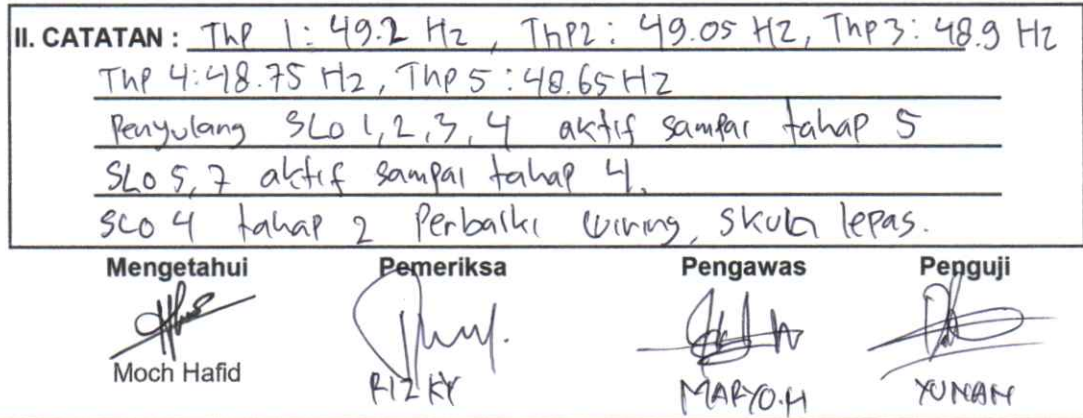 II. CATATAN : Thp 1: 49.2 Hz, Thp2: 49.05 Hz, Thp3: 48.9 Hz
Thp 4: 48.75 Hz, Thp 5: 48.65 Hz
Penyulang SLO 1, 2, 3, 4 aktif sampai tahap 5
SLO 5, 7 aktif sampai tahap 4.
SLO 4 tahap 2 Perbaiki wiring, skun lepas.
Mengetahui Pemeriksa Pengawas Penguji
Moch Hafid RIZKY MARYO.H YUNAN